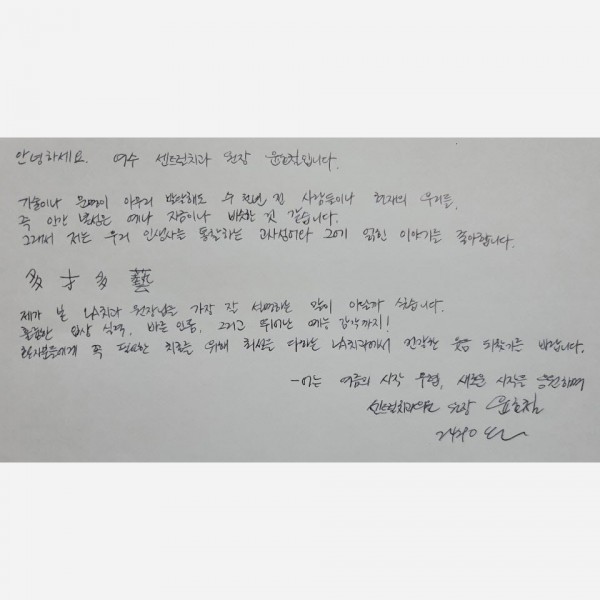 안녕하세요. 여수 센트럴치과 원장 윤호철입니다.
기술이나 문명이 아무리 발달해도 수 천년 전 사람들이나 현재의 우리들,
즉 인간 본성은 예나 지금이나 비슷한 것 같습니다.
그래서 저는 우리 인생사를 통찰하는 고사성어와 거기 얽힌 이야기를 좋아합니다.
多才多藝
제가 본 LA치과 원장님을 가장 잘 설명하는 말이 아닐까 싶습니다.
훌륭한 임상 실력, 바른 인품, 그리고 뛰어난 예능 감각까지!
환자분들에게 꼭 필요한 치료를 위해 최선을 다하는 LA치과에서 건강한 웃음 되찾기를 바랍니다.
-어느 여름의 시작 무렵, 새로운 시작을 응원하며
센트럴치과의원 원장 윤호철